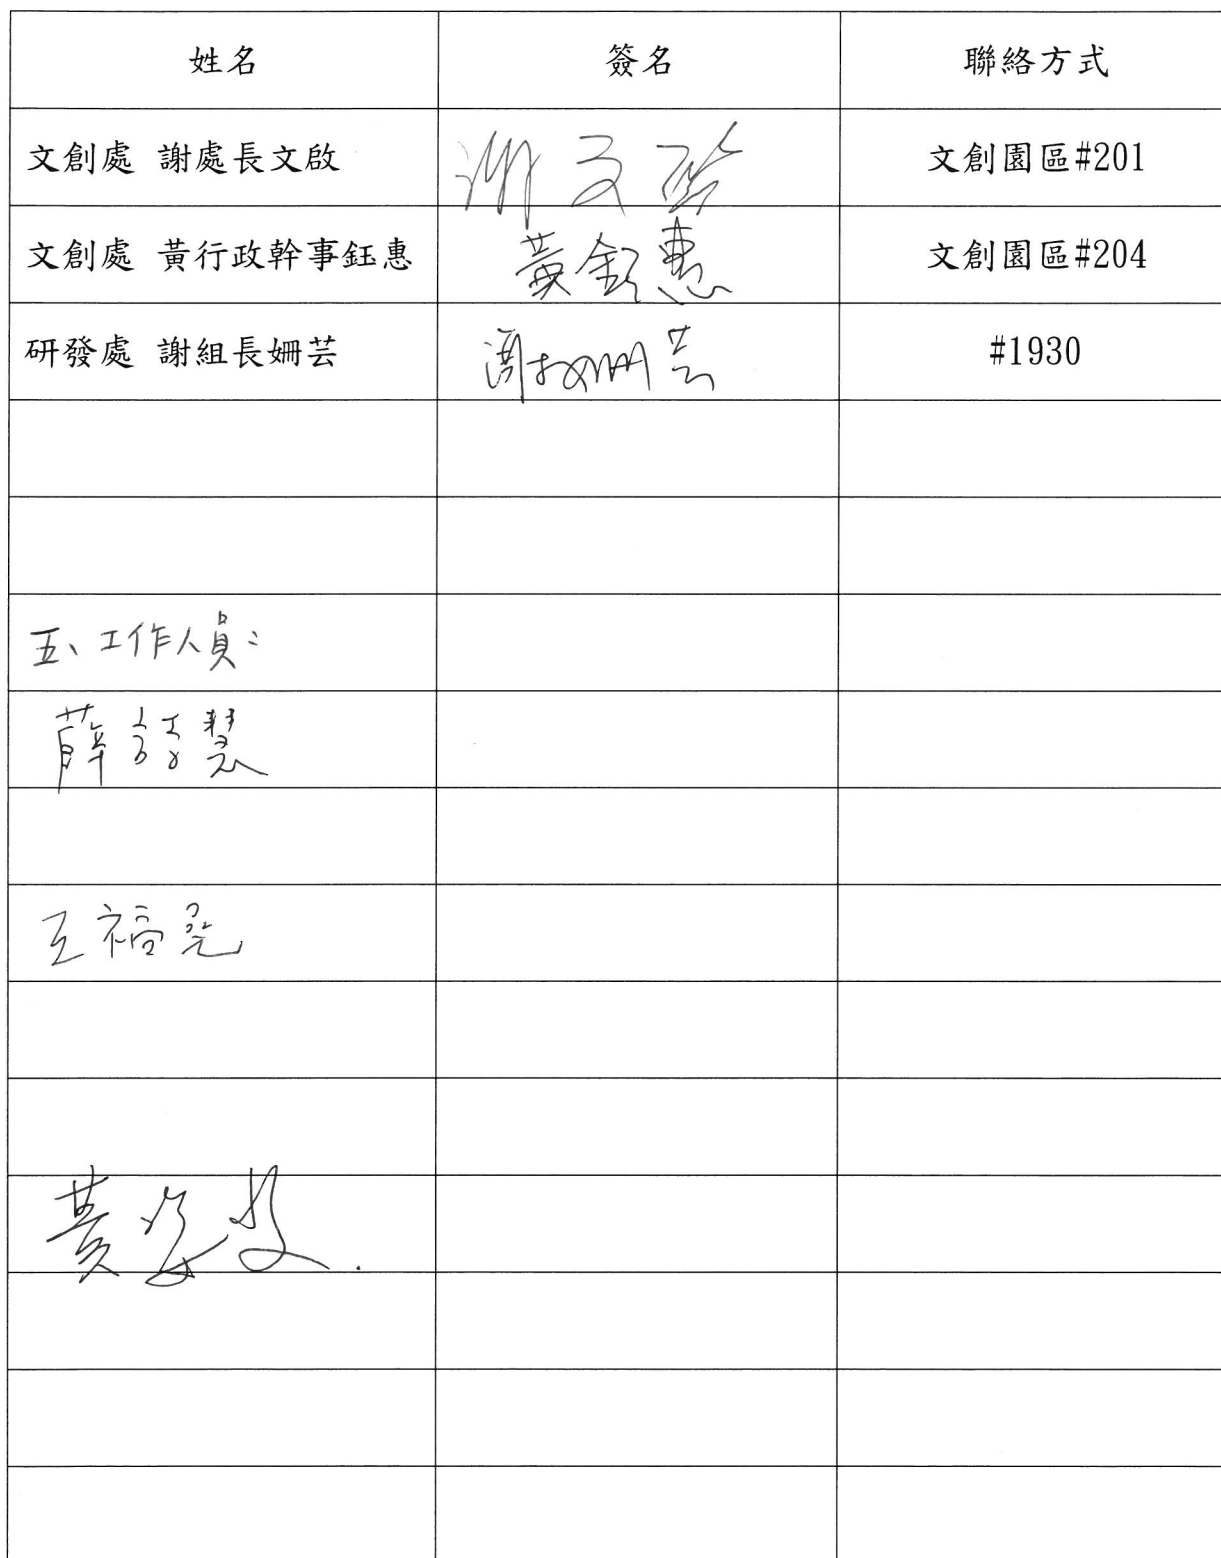 姓名 簽名 聯絡方式
文創處 謝處長文啟 謝文啟 文創園區#201
文創處 黃行政幹事鈺惠 黃鈺惠 文創園區#204
研發處 謝組長姍芸 謝姍芸 #1930
五、工作人員：
薛詩慧
王福亮
黃